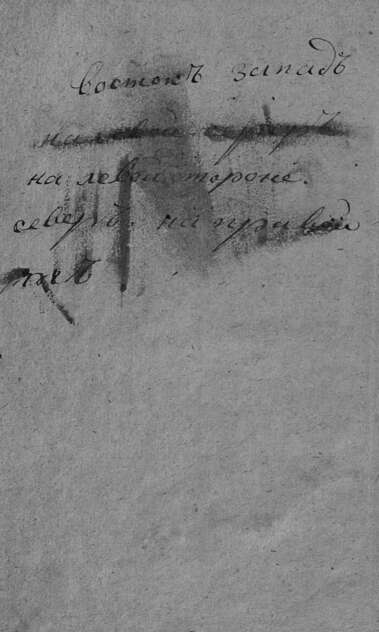 востокъ западъ
на левой
на левой стороне.
северъ. на правой